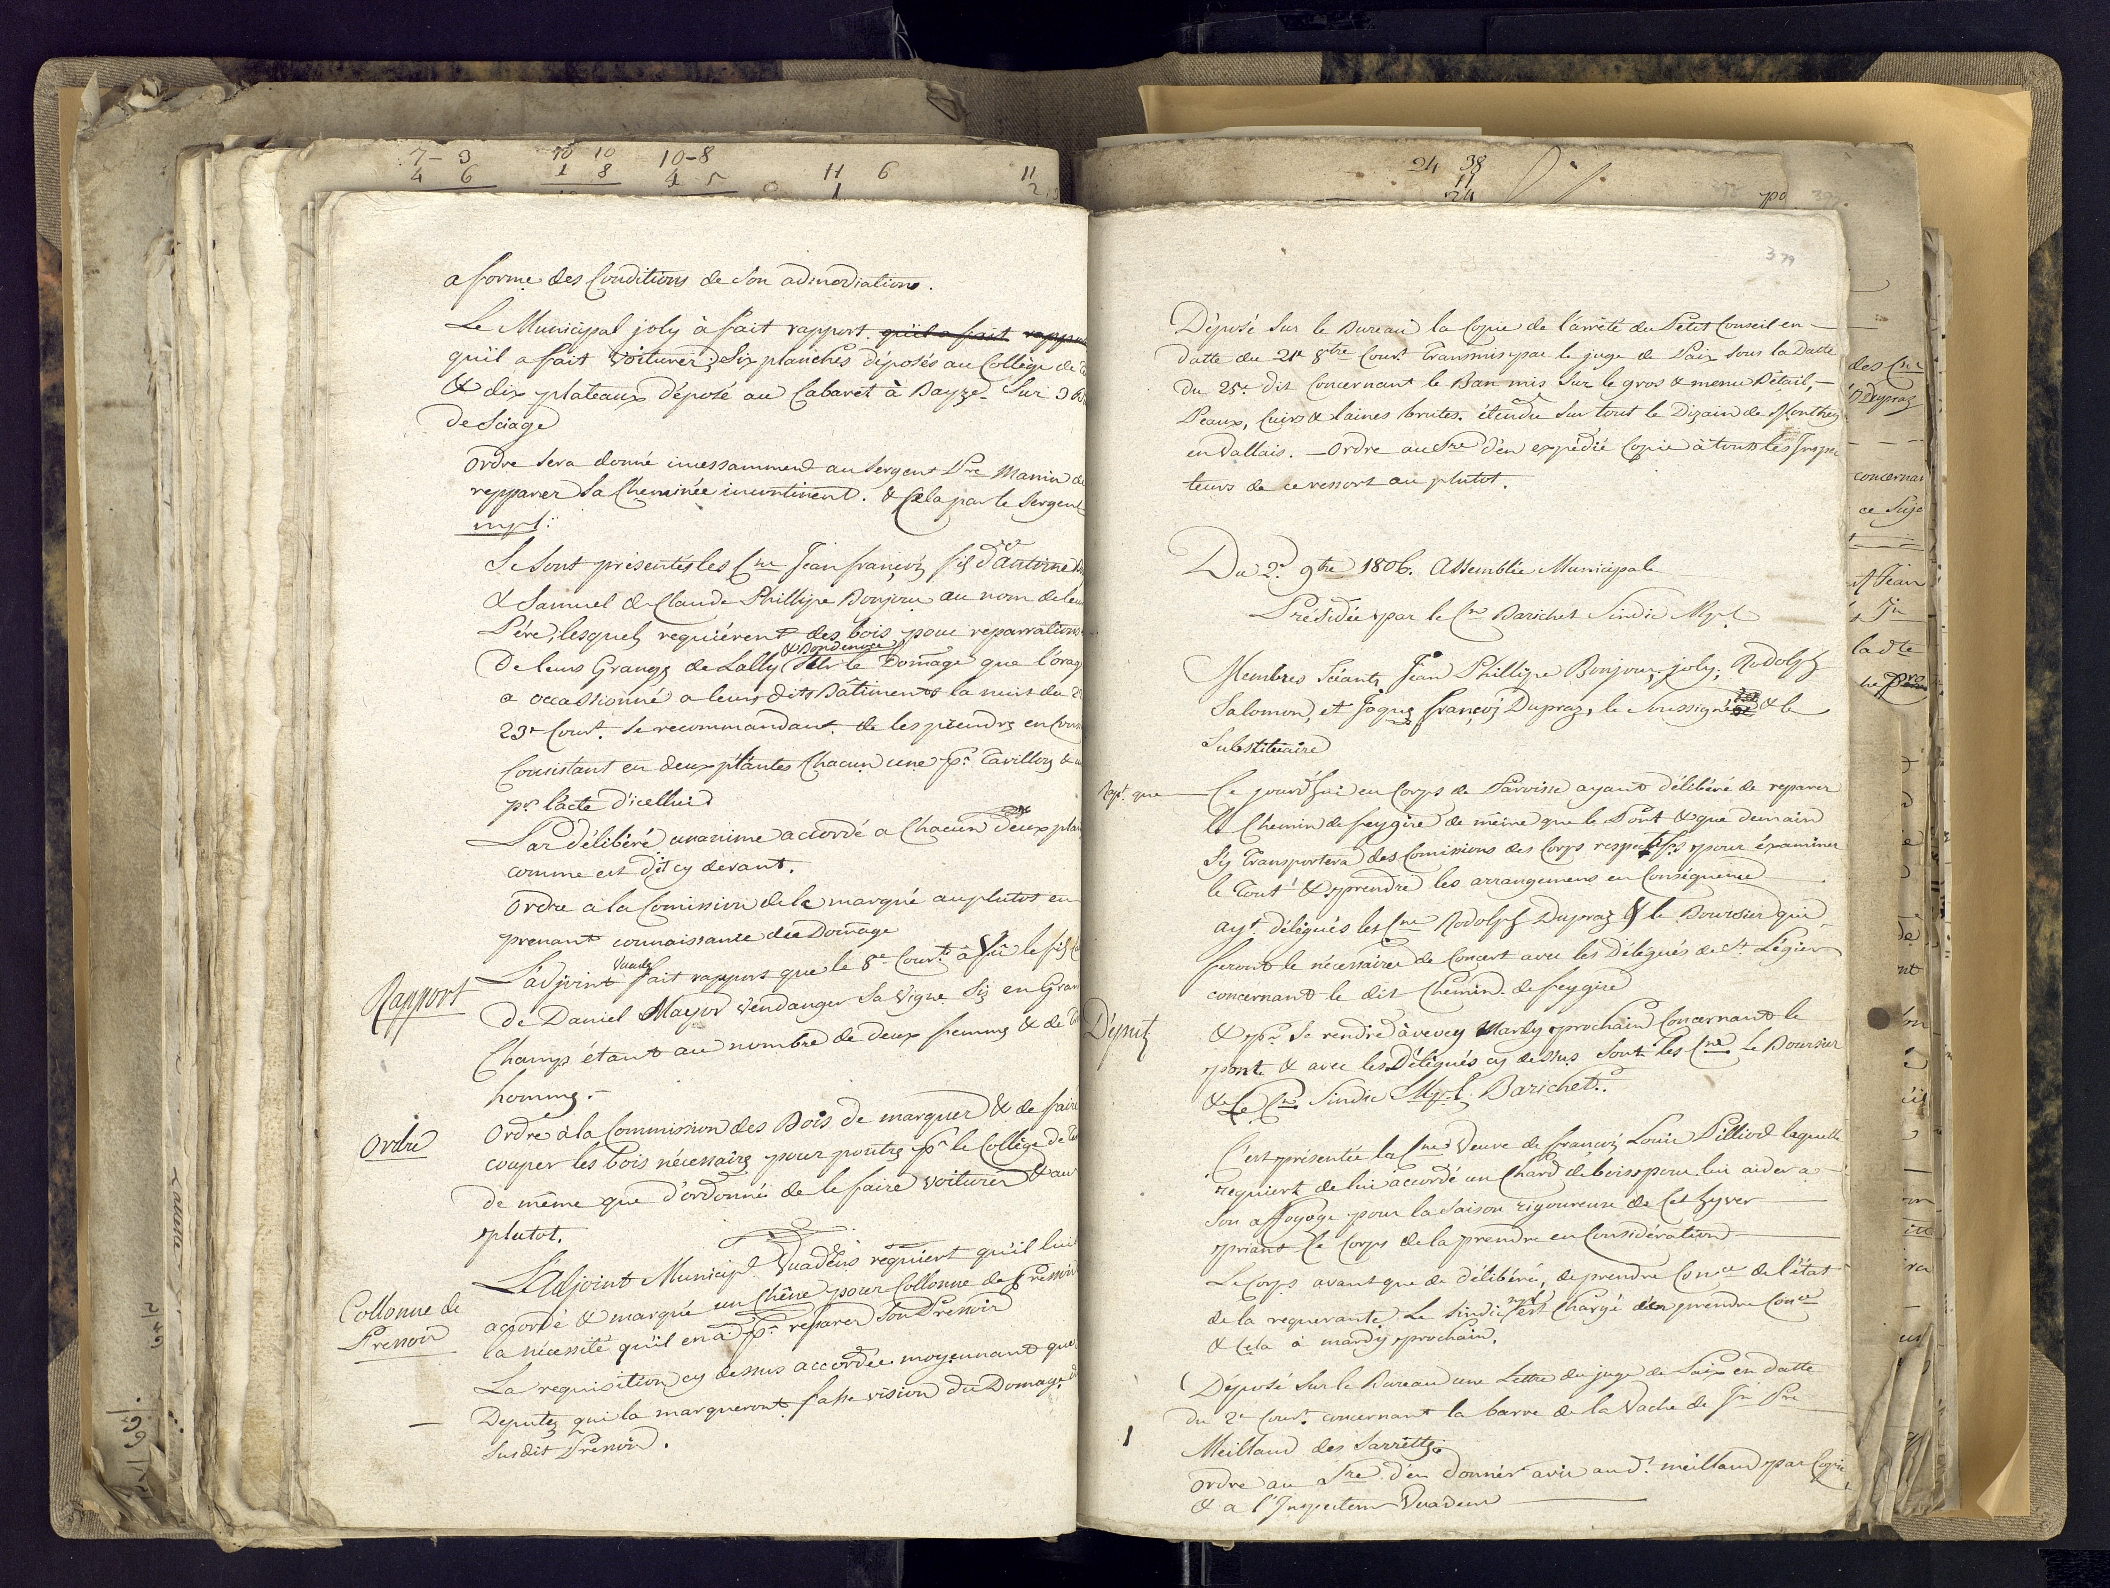 7 – 3 10 10 10 – 8 11 6 11
4 6 1 8 4 5 1 2
a forme des Conditions de Son admodiations.
Le Municipal joly à fait rapport qu'il a fait rapport
qu'il a fait Voiturer; Six planches déposés au Collège de
& dix plateaux déposé au Cabaret à Bayze. Sur
de Sciage
Ordre Sera donné incessamment au Sergent Pre Mamin de
repparer la Cheminée incontinent. & Cela par le Sergent
mpl:
Se Sont présentés les Cne Jean françois fils d'antoine
& Samuel & Claude Phillipe Bonjour au nom de leur
Pére, lesquels requiérent des bois pour reparrations
& Bondenoire
de leurs Granges de Lally du le Domage que l'orage
a occassionné a leurs dits Bâtiments la nuit du
23e Court. Se recommandant de les prendre en Cons
Consistant en deux plantes Chacun une pr Tavillons &
pr lácte d'icellui
Par délibéré unanime accordé a Chacun deux plan
comme est dit cy devant.
Ordre a la Comission de le marqué au plutot en
prenant connaissance du Domage
Rapport
Vuadens
L'adjoint fait rapport que le 8e Court. à Vû le fils
de Daniel Mayor Vendanger Sa Vigne Sis en Gran
Champ étant au nombre de deux femmes & de
hommes.
Ordre
Ordre à la Commission des Bois de marquer & de faire
couper les bois nécessaires pour poutres pr le Collège de
de même que d'ordonné de le faire voiturer & au
plutot.
Collonne de
Pressoir
L'Adjoint Municipl Vuadens requiert qu'il lui
accordé & marqué un Chêne pour Collonne de Pressoir
la nécessité qu'il en a pr reparer Son Pressoir
La requisition cy dessus accordée moyennant que
Deputés qui la marqueront fasse vision du Domage
Susdit Pressoir.
24 38
11
24
379
Déposé Sur le Bureau la Copie de l'arrêté du Petit Conseil en
datte du 21e 8bre Court Transmis par le juge de Paix Sous la Datte
du 25e dit Concernant le Ban mis Sur le gros & menu Bétail,
Peaux, Cuirs & laines brutes. étendu Sur tout le Dizain de Monthey
en Vallais. — Ordre au Sre d'en expédié Copie à tous les Inspec
teurs de ce ressort au plutot.
Du 2e 9bre 1806. Assemblée Municipale
Présidée par le Cn Barichet Sindic Mpl
Membres Séants Jean Phillipe Bonjour, joly, Rodolph
Salomon, et Jaques françois Dupraz, le Soussigné & le
Substituaire
Rapt. que
Ce jourd'hui en Corps de Parroisse ayant délibéré de reparer
le Chemin de feygire de même que le Pont & que demain
Sy Transportera des Comissions des Corps respectifs pour éxaminer
le tout & prendre les arrangemens en Conséquence
ayt. délégués les Cne Rodolph Dupraz & le Boursier qui
feront le nécessaires de Concert avec les Délégués de St. Légier
concernant le dit Chemin de feygire
Députés
& pr Se rendre à vevey Mardy prochain Concernant le
pont & avec les Délégués cy dessus Sont les Cne Le Boursier
& Le Cne Sindic Mpl. Barichet.
C'est présentée la Cne Veuve de françois Louis Pilliod laquelle
requiert de lui accordé un Chard de bois pour lui aider a
Son affoyage pour la Saison rigoureuse de Cet hyver
priant le Corps de la prendre en Considération
Le Corps avant que de délibéré, de prendre Conce de l'état
de la requerante Le Sindic mpl est Chargé d'en prendre Conce
& Cela à mardy prochain.
Déposé Sur le Bureau une Lettre du juge de Paix en datte
du 2e Court. concernant la barre de la Vache de Jn Pre
Meilland des Sarretts
Ordre au Sre d'en donner avis au dt meilland par Copie
& a l'Inspecteur Vuadens
des Cne
Dupraz
concernan
ce Suje
Jean
Jn
la dte